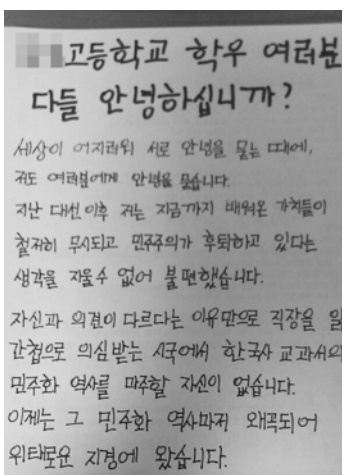 고등학교 학우 여러분
다들 안녕하십니까?
세상이 어지러워 서로 안녕을 묻는 때에,
저도 여러분에게 안녕을 묻습니다.
지난 대선 이후 저는 지금까지 배워온 가치들이
철저히 무시되고 민주주의가 후퇴하고 있다는
생각을 지울 수 없어 불편했습니다.
자신과 의견이 다르다는 이유만으로 직장을 잃
간첩으로 의심받는 시국에서 한국사 교과서의
민주화 역사를 마주할 자신이 없습니다.
이제는 그 민주화 역사마저 왜곡되어
위태로운 지경에 왔습니다.